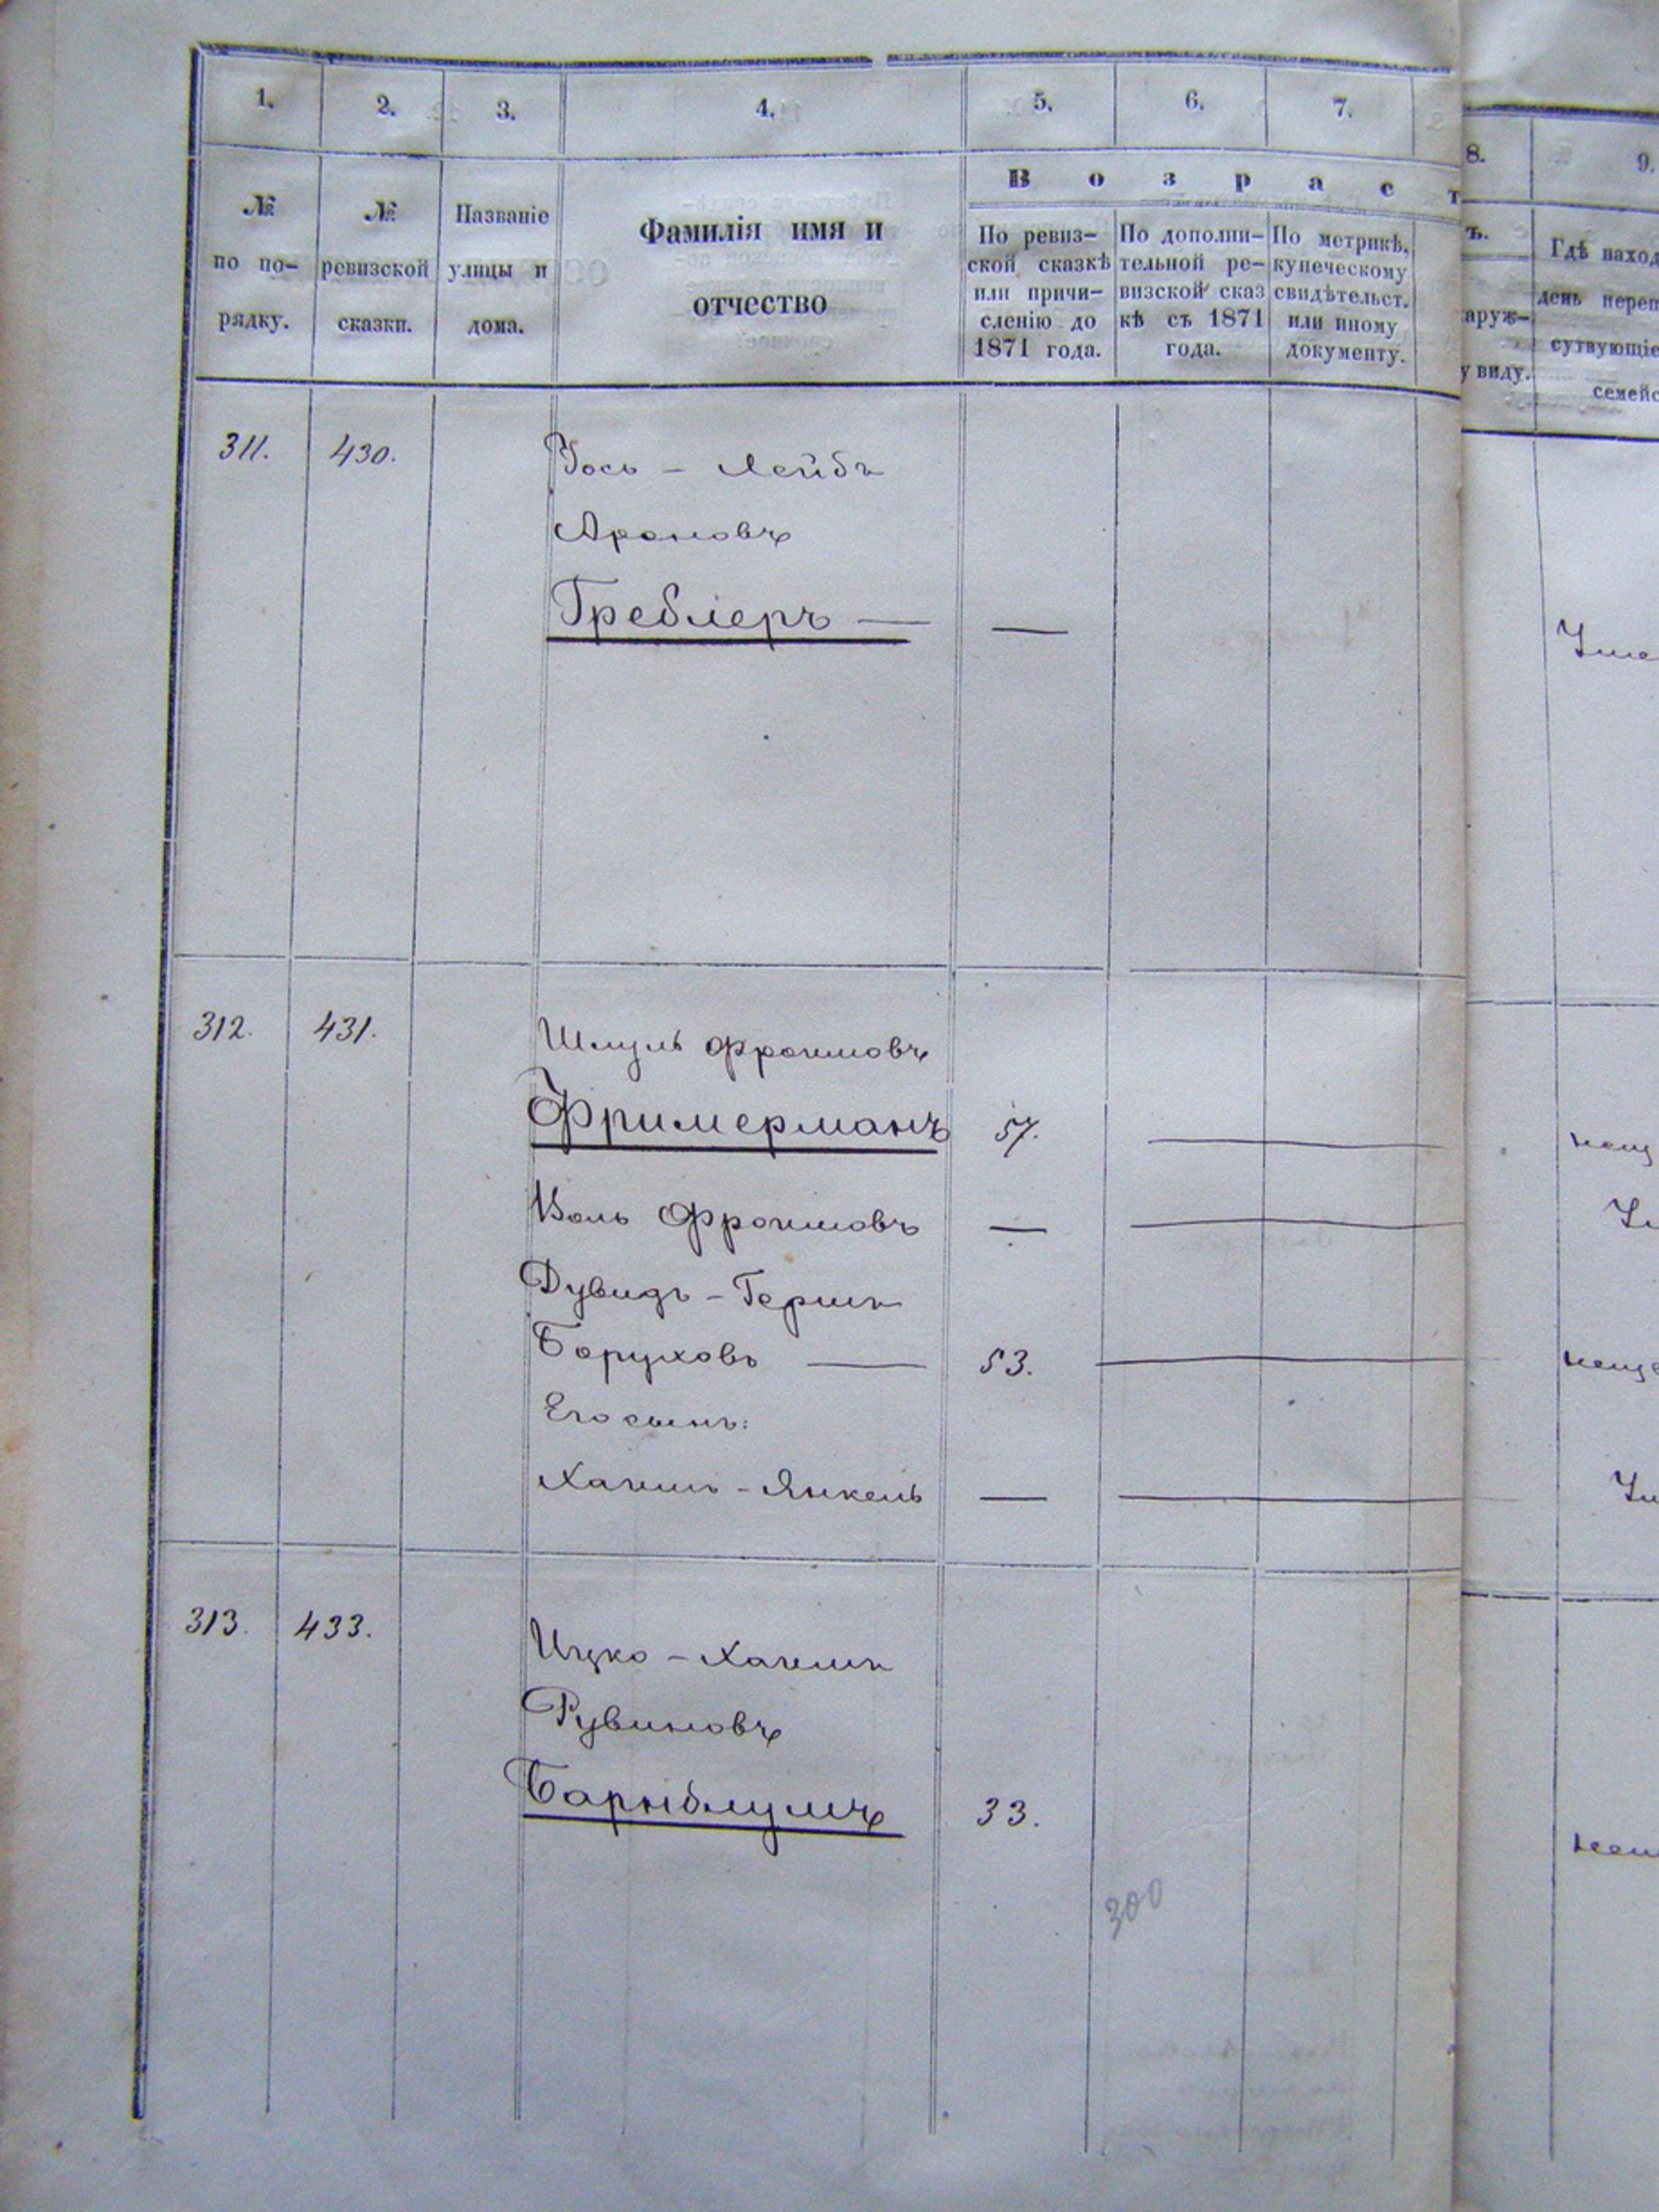 1. 2. 3. 4. 5. 6. 7.
8. 9.
В о з р а с т
ъ.
№ по по-рядку.
№ ревизской сказки.
Названіе улицы и дома.
Фамилія имя и
отчество
По ревиз-
ской сказкѣ
или причи-
сленію до
1871 года.
По дополни-
тельной ре-
визской сказ
кѣ съ 1871
года.
По метрикѣ,
купеческому
свидѣтельст.
или иному
документу.
аруж-
у виду.
Гдѣ наход
день переп
сутвующіе
семейс
311. 430. Іось - Лейбъ
Ароновъ
Греблеръ — —
312. 431. Шмуль Фроимовъ
Фримерманъ 57. —
Воль Фроимовъ — —
Дувидъ - Гершъ
Боруховъ — 53. —
Его сынъ:
Хаимъ - Янкель — —
313. 433. Ицко - Хаимъ
Рувиновъ
Барнблумъ 33.
300